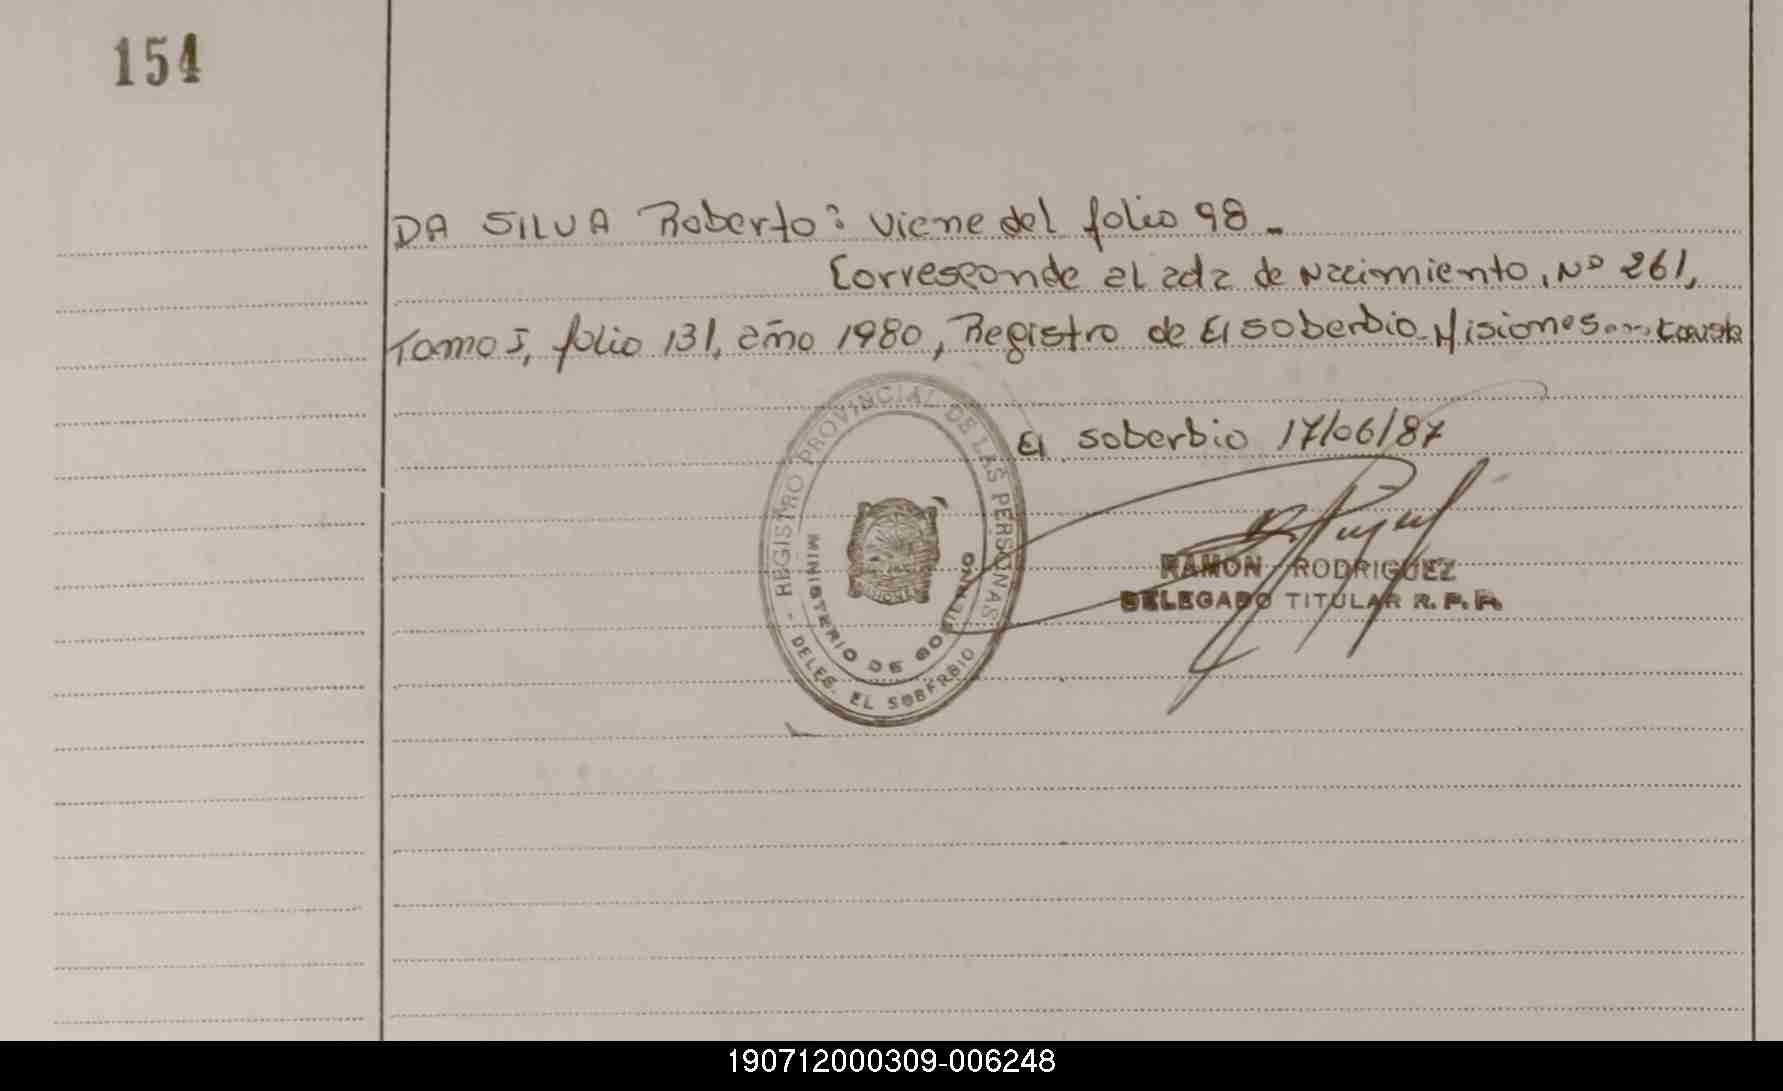 154
DA SILVA Roberto: viene del folio 98 -
Corresponde al acta de Nacimiento, Nº 261,
Tomo I, folio 131, año 1980, Registro de El Soberbio - Misiones
El soberbio 17/06/87
REGISTRO PROVINCIAL DE LAS PERSONAS
MINISTERIO DE GOBIERNO
- DELEG. EL SOBERBIO
RAMON RODRIGUEZ
DELEGADO TITULAR R. P. P.
190712000309-006248